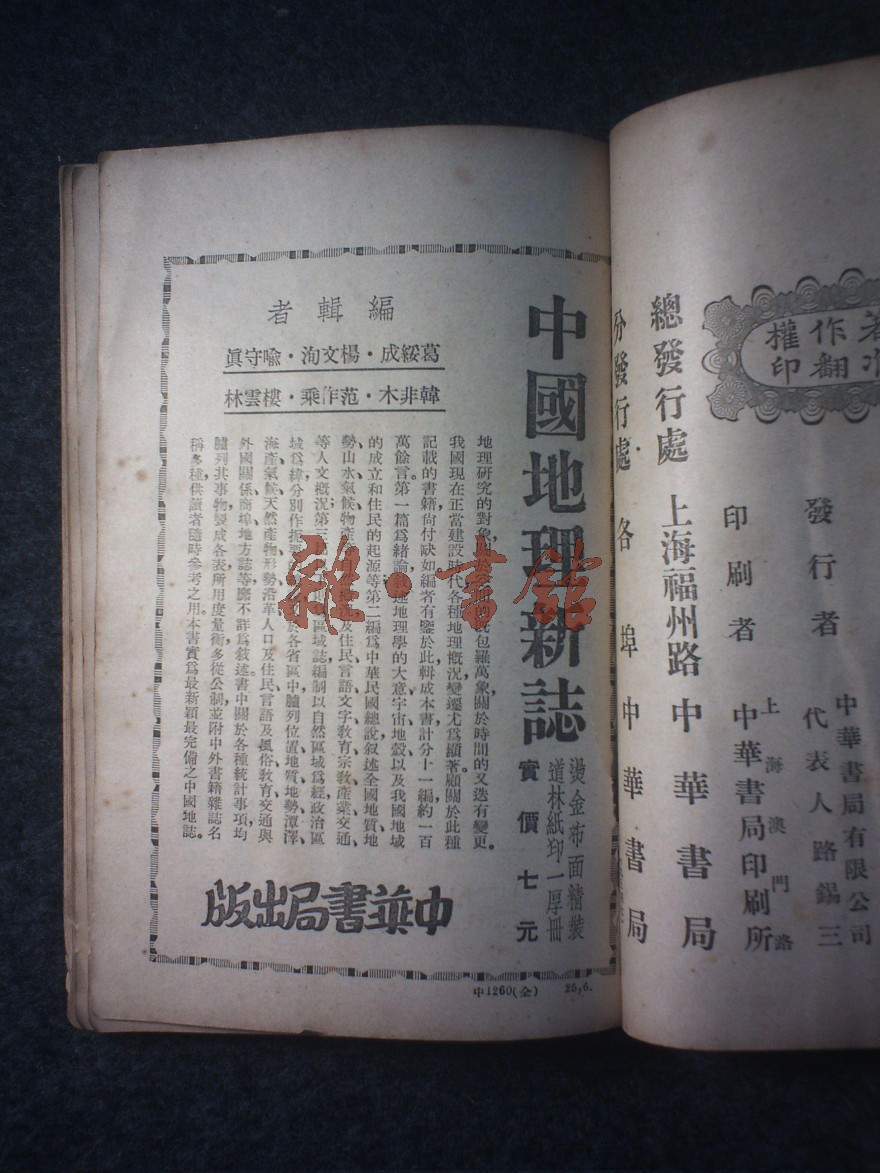 著
作
權
翻
印
發行者
中華書局有限公司
代表人路錫三
印刷者
上海澳門路
中華書局印刷所
總發行處
上海福州路
中華書局
分發行處
各埠中華書局
中國地理新誌
燙金布面精裝
道林紙印一厚冊
實價七元
編輯者
葛綏成・楊文洵・喻守眞
韓非木・范作乘・樓雲林
地理研究的對象關於空間的既包羅萬象關於時間的又迭有變更、
我國現在正當建設時代各種地理概況變遷尤爲顯著顧關於此種
記載的書籍尙付缺如編者有鑒於此輯成本書計分十一編約一百
萬餘言。第一篇爲緒論敍述地理學的大意宇宙地殼以及我國地域
的成立和住民的起源等第二編爲中華民國總說敍述全國地質地
勢山水氣候物產等自然概況及住民言語文字教育宗教產業交通、
等人文概況第三區域誌編制以自然區域爲經政治區
域爲緯分別作扼要於各省區中臚列位置地質地勢潭澤、
海產氣候天然產物形勢沿革人口及住民言語及風俗教育交通與
外國關係商埠地方誌等靡不詳爲敍述書中關於各種統計事項均
臚列其事物製成各表所用度量衡多從公制並附中外書籍雜誌名
稱多種供讀者隨時參考之用本書實爲最新穎最完備之中國地誌。
中華書局出版
中1260(全) 25,6.
雜・書館